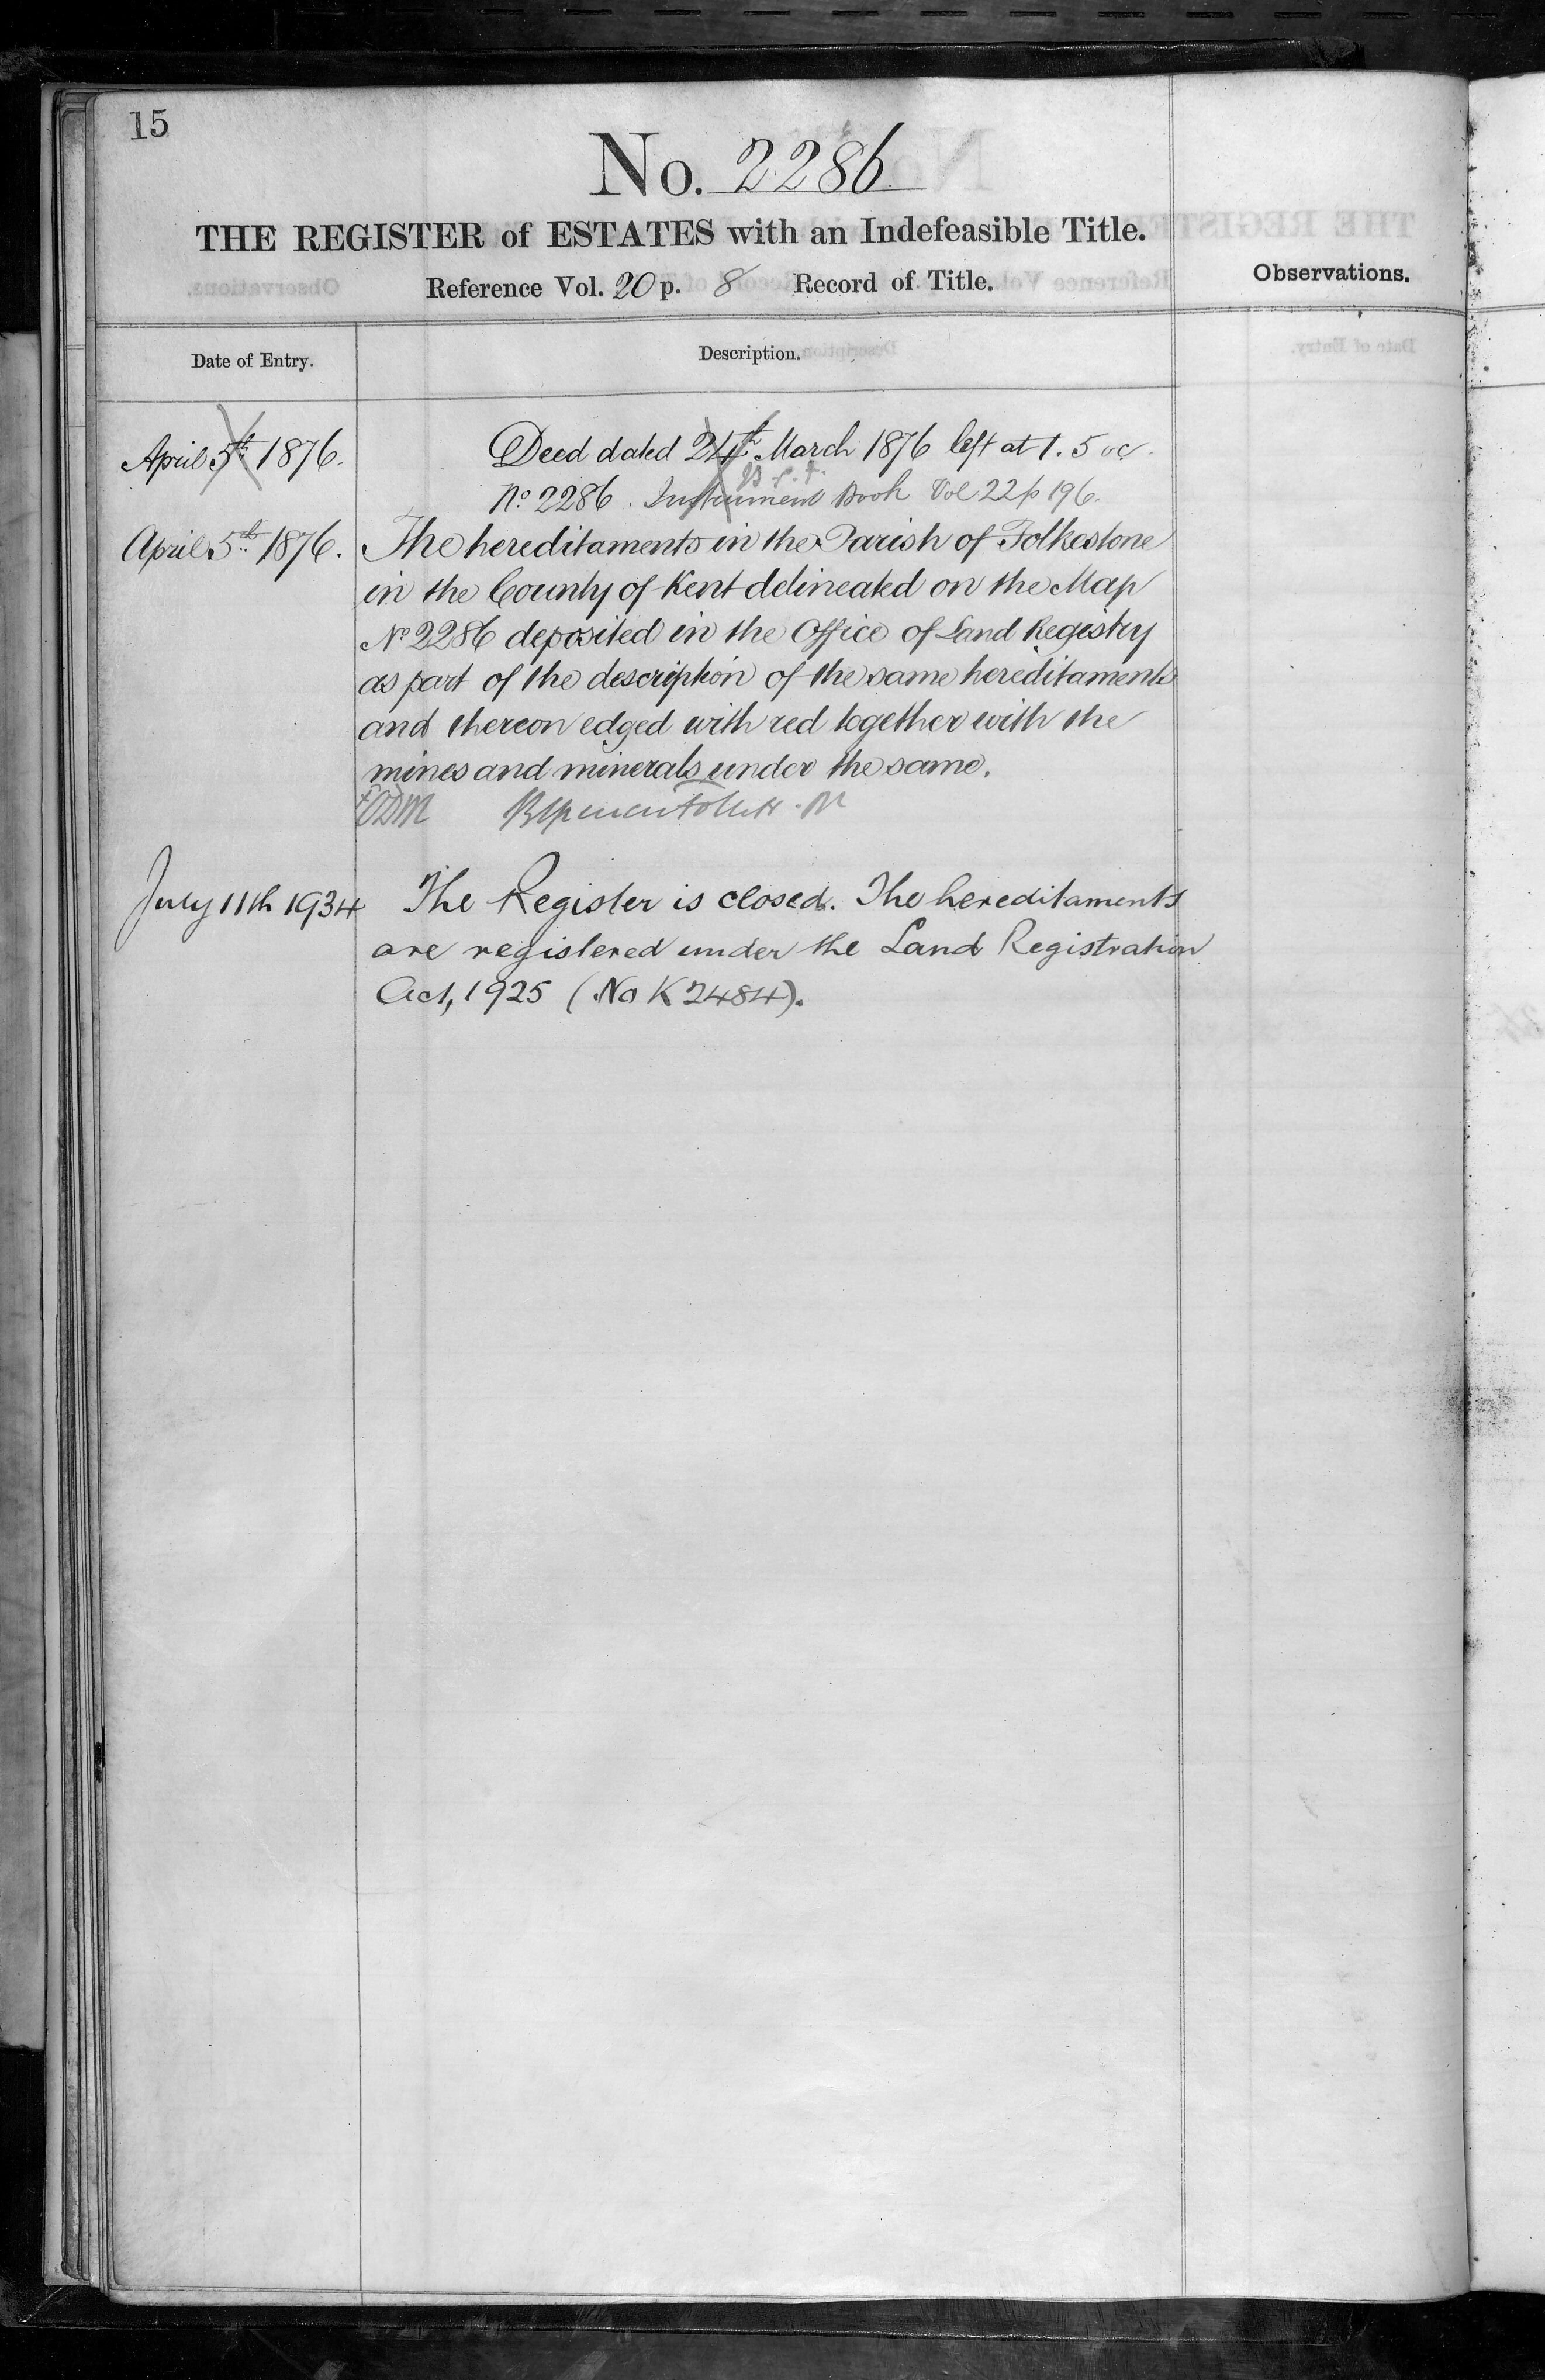 15
No. 2286
THE REGISTER of ESTATES with an Indefeasible Title.
Reference Vol. 20 p. 8 Record of Title.
Observations.
Date of Entry.
Description.
April 5th 1876. Deed dated 24th March 1876 left at 1.5 oc.
No 2286. Instrument Book Vol 22 p 196.
April 5th 1876. The hereditaments in the Parish of Folkestone
in the County of Kent delineated on the Map
No 2286 deposited in the Office of Land Registry
as part of the description of the same hereditaments
and thereon edged with red together with the
mines and minerals under the same.
July 11th 1934 The Register is closed. The hereditaments
are registered under the Land Registration
Act, 1925 (No K 2484).